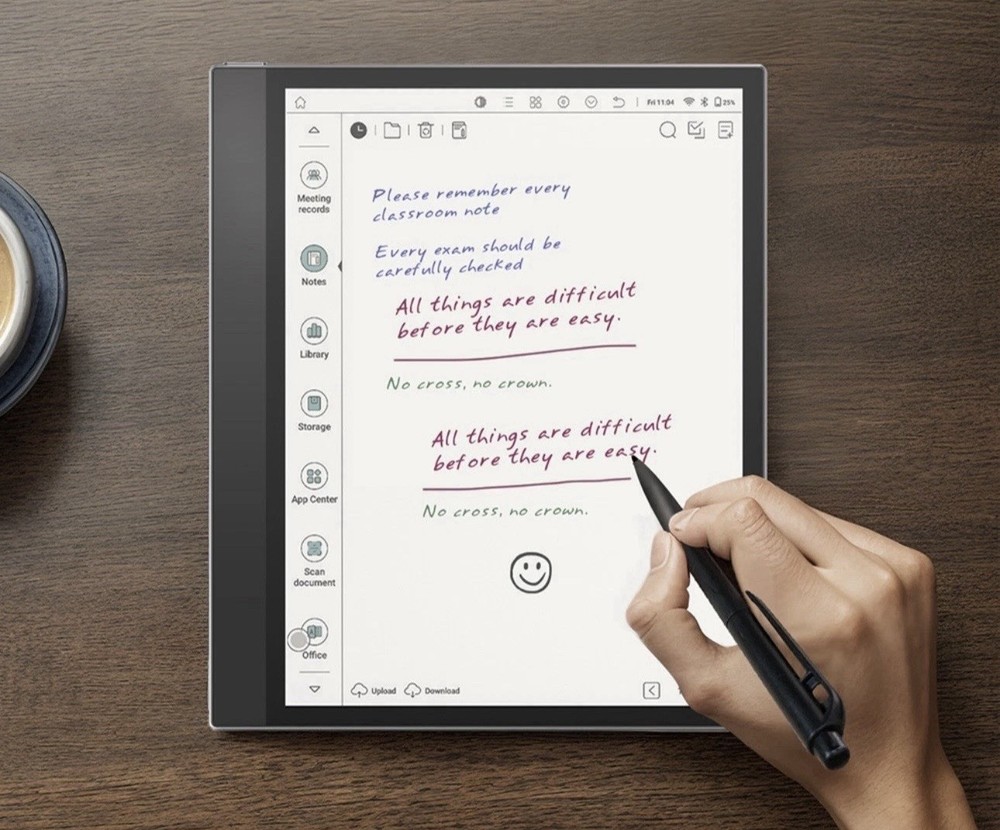 Fri 11:04
25%
Meeting
records
Notes
Library
Storage
App Center
Scan
document
Office
Please remember every
classroom note
Every exam should be
carefully checked
All things are difficult
before they are easy.
No cross, no crown.
All things are difficult
before they are easy.
No cross, no crown.
Upload
Download